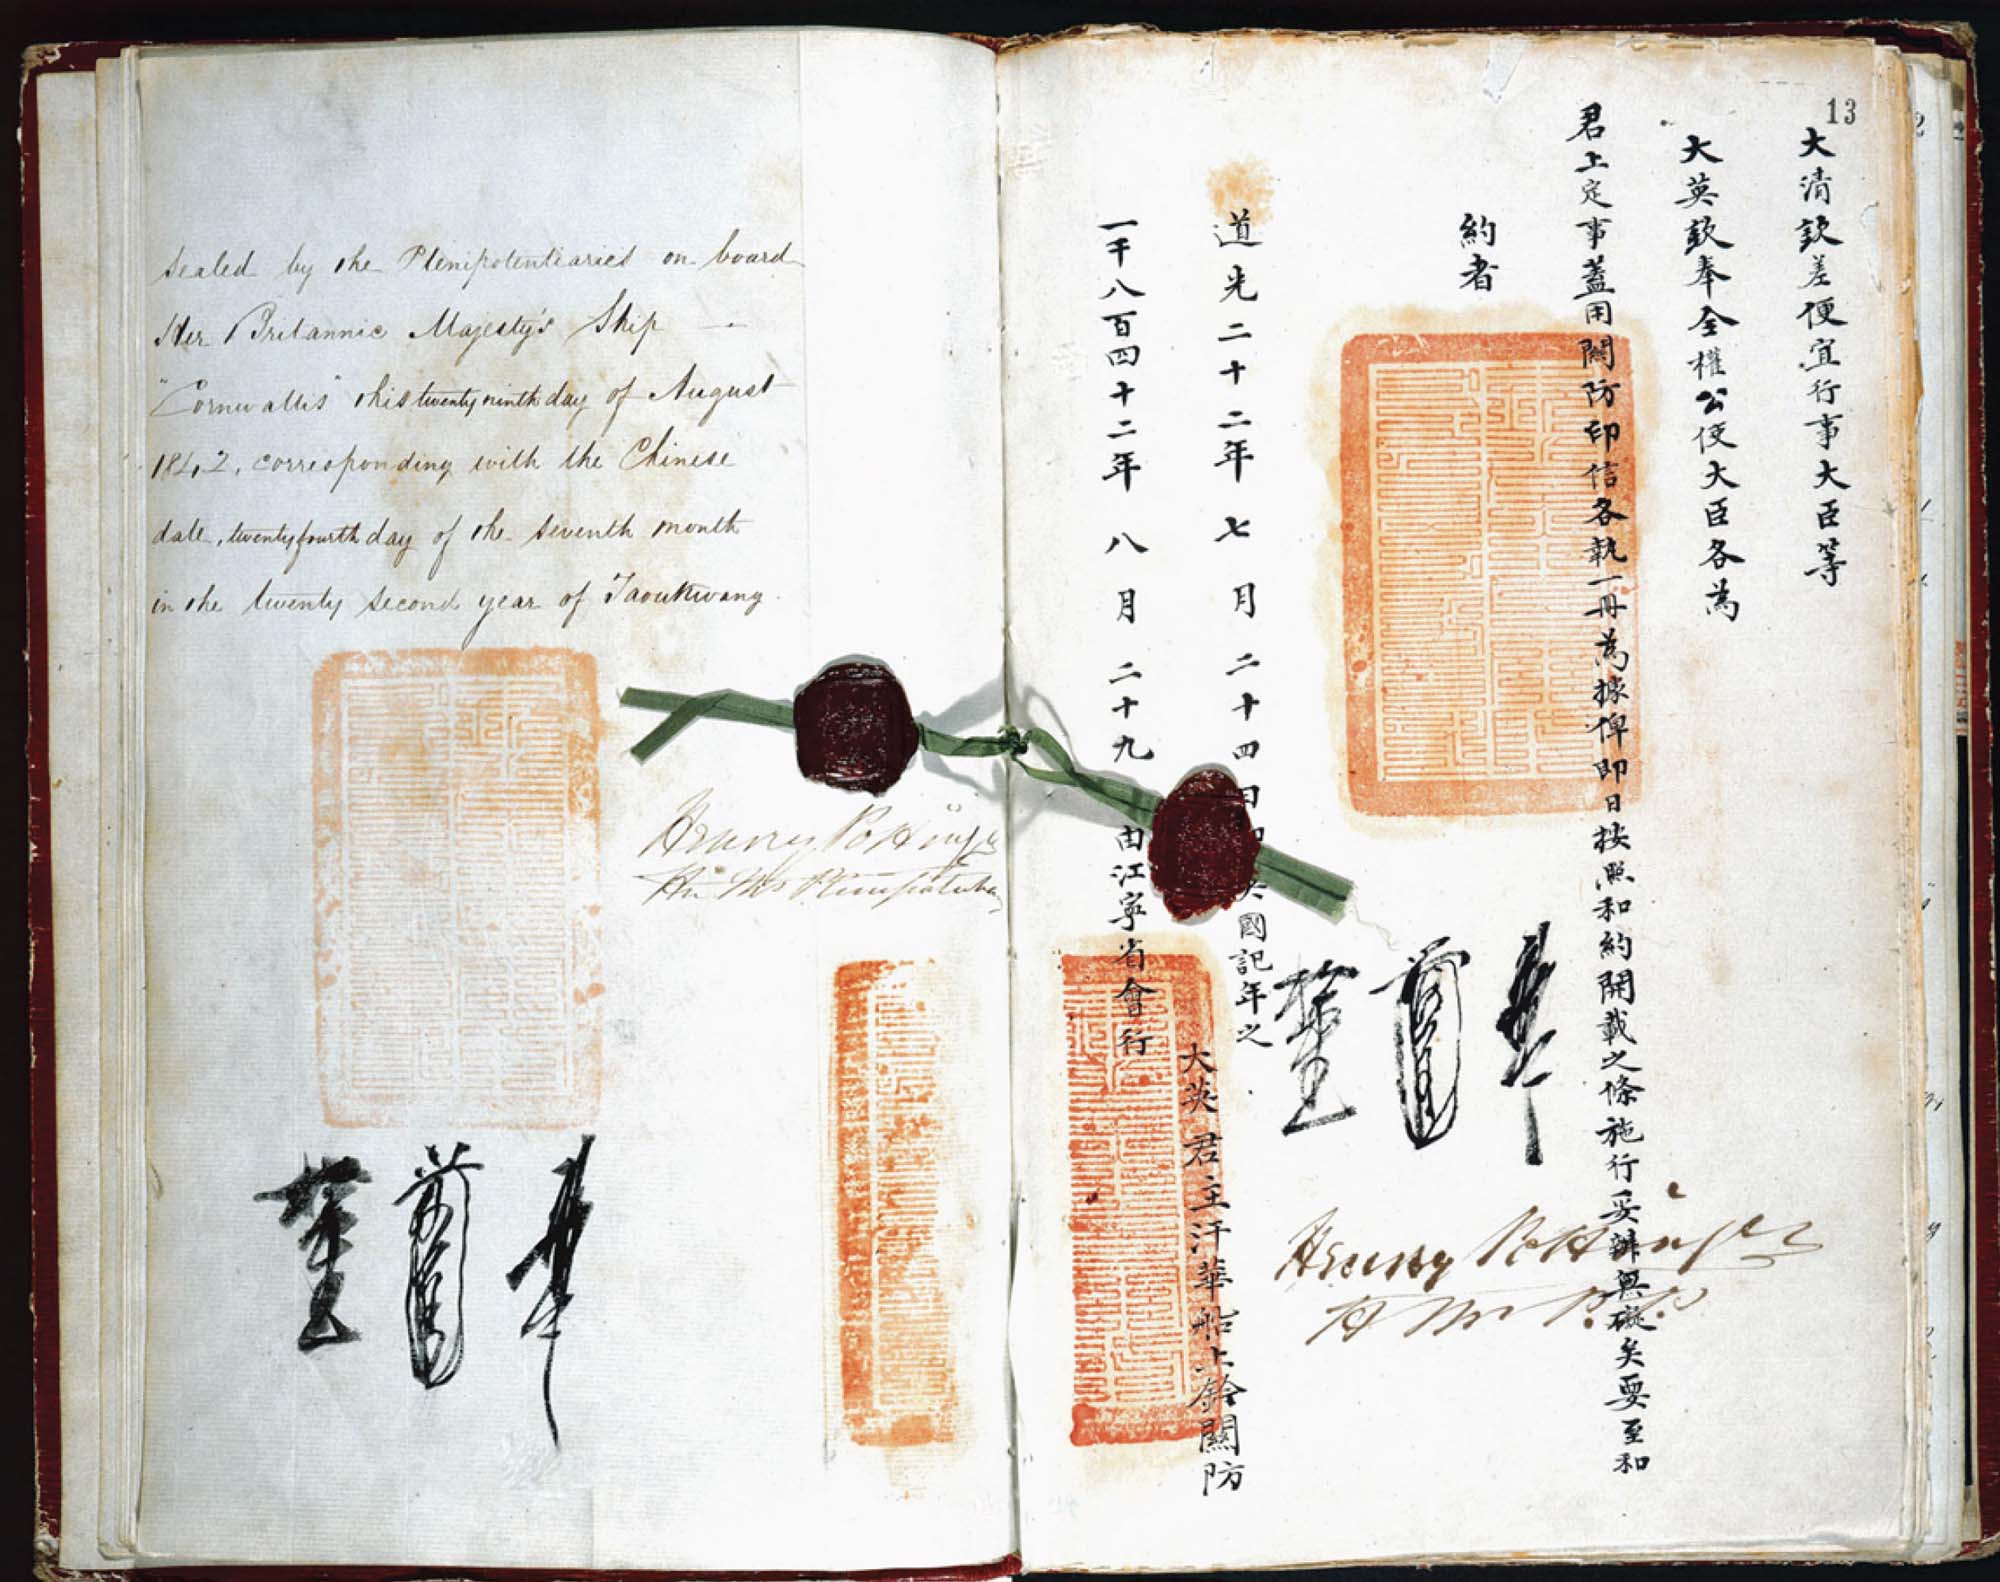 sealed by the Plenipotentiaries on board
Her Britannic Majesty's Ship
"Cornwallis" this twenty ninth day of August
1842, corresponding with the Chinese
date, twenty fourth day of the seventh month
in the twenty second year of Taoukwang
Henry Pottinger
13
大清欽差便宜行事大臣等
大英欽奉全權公使大臣各為
君上定事蓋用關防印信各執一冊為據俾即日按照和約開載之條施行妥辦無礙矣要至和
約者
道光二十二年七月二十四日即英國記年之
一千八百四十二年八月二十九日由江寧省會行
大英君主汗華船上鈐關防
Henry Pottinger